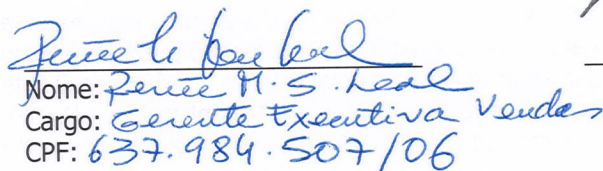 Nome: Renée M. S. Leal
Cargo: Gerente Executiva Vendas
CPF: 637.984.507/06